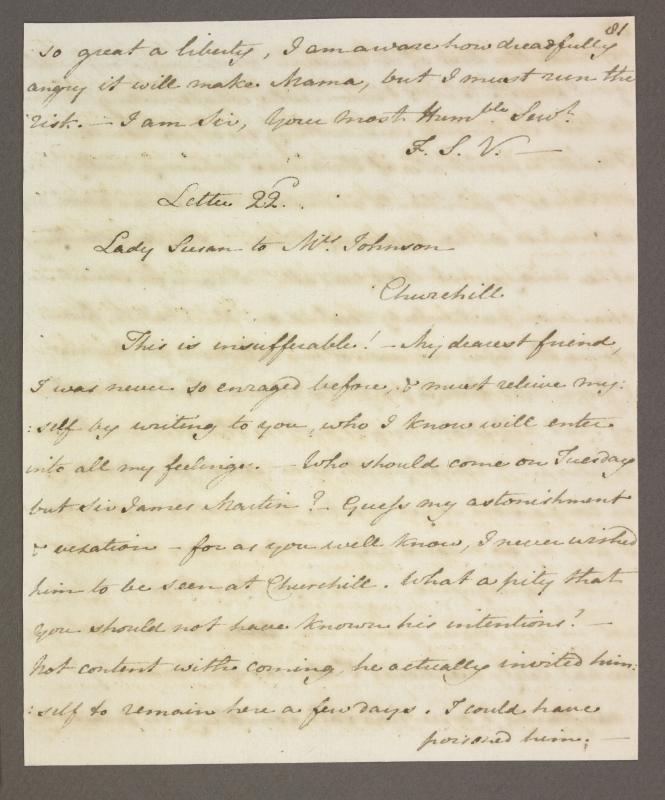 81
so great a liberty, I am aware how dreadfully
angry it will make Mama, but I must run the
risk. — I am Sir, Your most Humble Servt
F. S. V. —
Letter 22d.
Lady Susan to Mrs Johnson
Churchill.
This is insufferable! — My dearest friend,
I was never so enraged before, & must relieve my:
:self by writing to you, who I know will enter
into all my feelings. — Who should come on Tuesday
but Sir James Martin? — Guess my astonishment
& vexation — for as you well know, I never wished
him to be seen at Churchill. What a pity that
you should not have known his intentions! —
Not content with coming, he actually invited him:
:self to remain here a few days. I could have
poisoned him; —